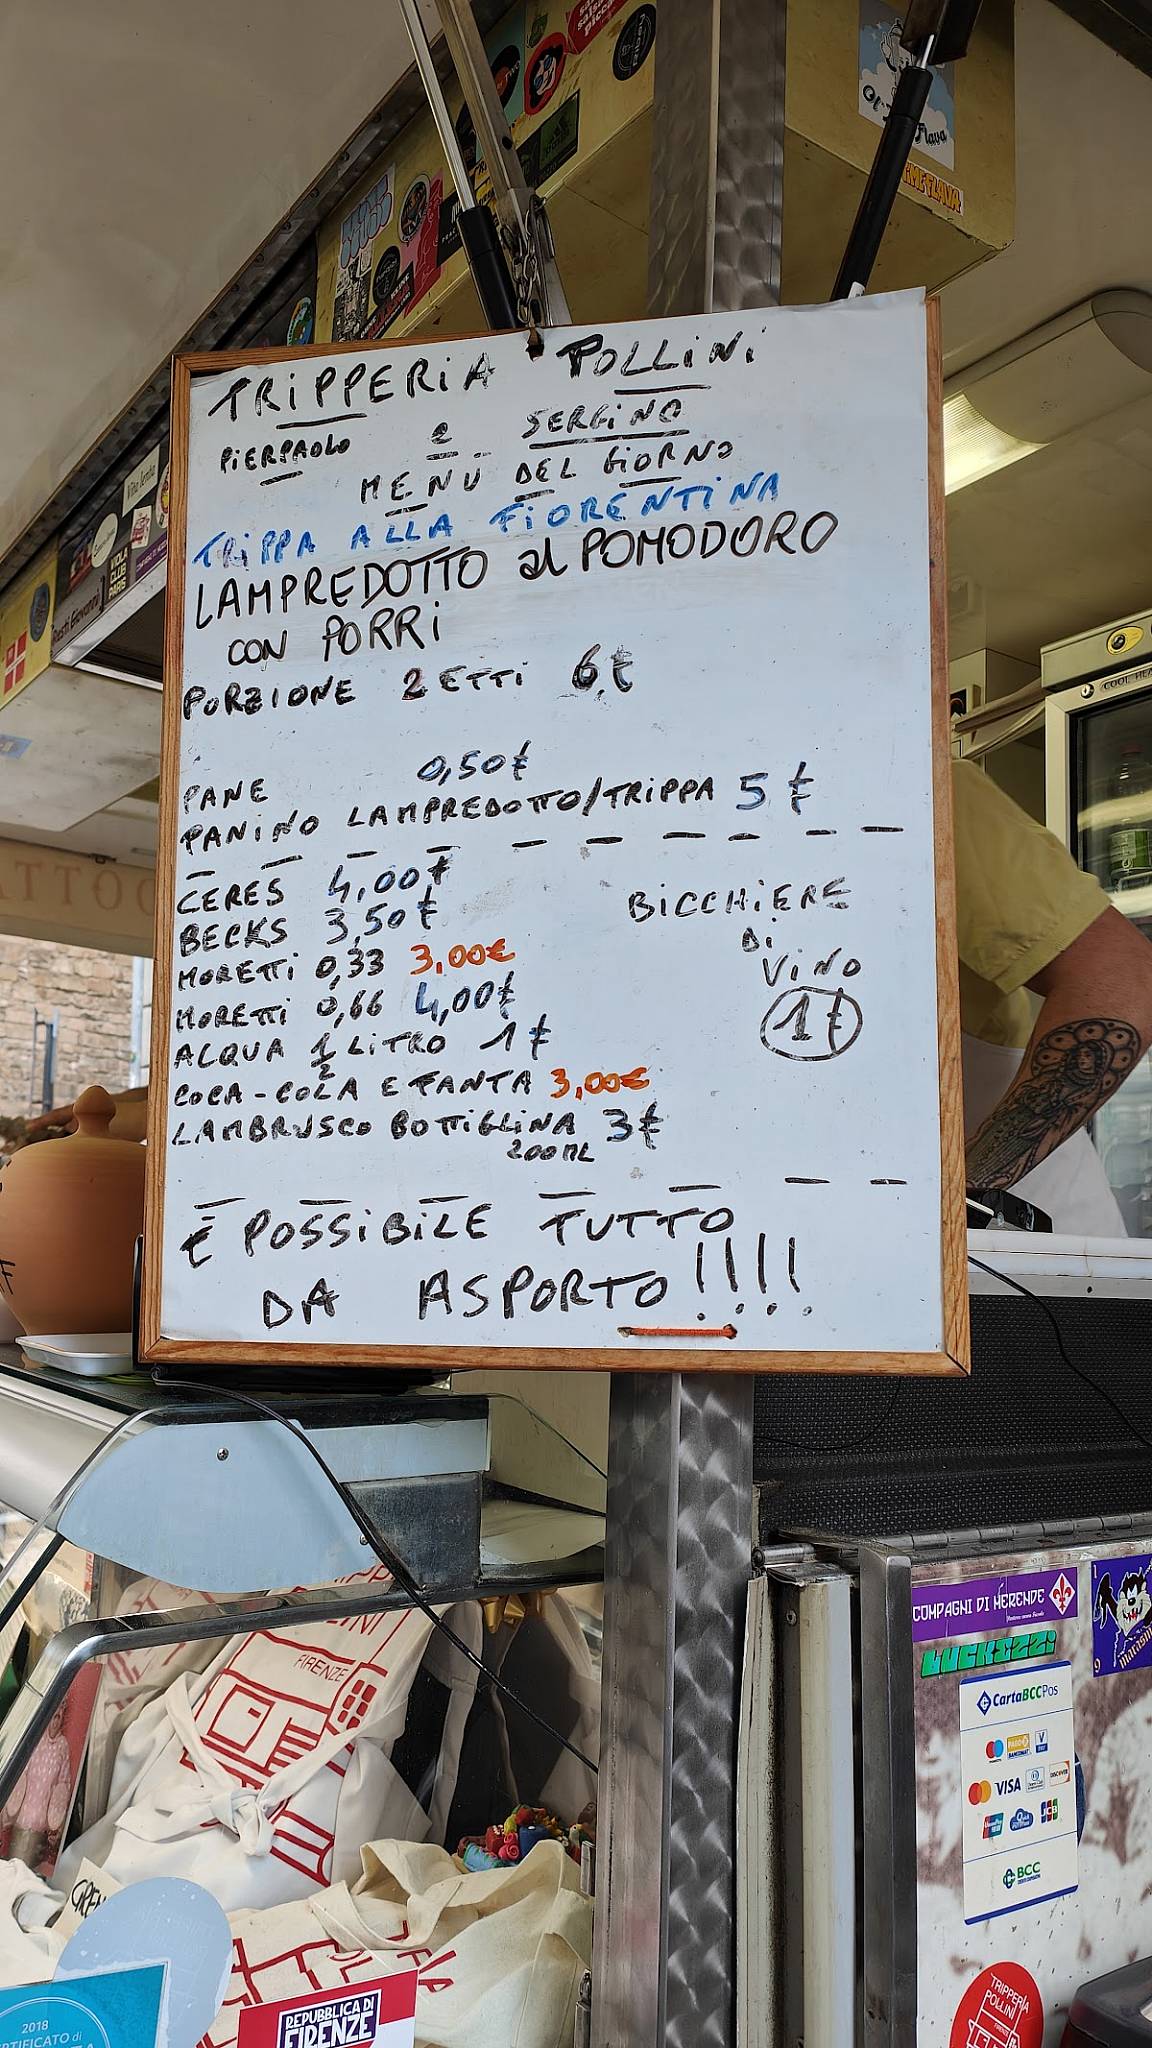 TRIPPERIA POLLINI
PIERPAOLO e SERGINO
MENÙ DEL GIORNO
TRIPPA ALLA FIORENTINA
LAMPREDOTTO al POMODORO
CON PORRI
PORZIONE 2 ETTI 6,€
PANE 0,50€
PANINO LAMPREDOTTO/TRIPPA 5 €
CERES 4,00€
BECKS 3,50€
MORETTI 0,33 3,00€
MORETTI 0,66 4,00€
ACQUA 1/2 LITRO 1€
COCA-COLA E FANTA 3,00€
LAMBRUSCO BOTTIGLINA 3€
200ML
BICCHIERE
DI
VINO
1€
È POSSIBILE TUTTO
DA ASPORTO!!!!
Flava
COOL HEA
Resti Giovanni
VIOLA
CLUB
PARIS
COMPAGNI DI MERENDE
LUCKEZZI
CartaBCCPos
VISA
DISCOVER
JCB
BCC
TRIPPERIA
POLLINI
FIRENZE
FIRENZE
REPUBBLICA DI
FIRENZE
2018